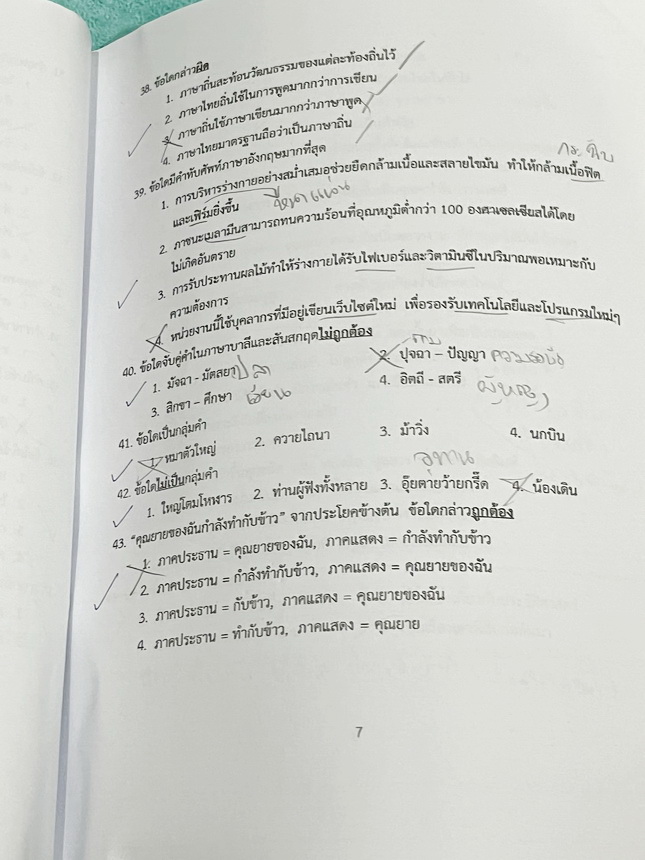 38. ข้อใดกล่าวผิด
1. ภาษาถิ่นสะท้อนวัฒนธรรมของแต่ละท้องถิ่นไว้
2. ภาษาไทยถิ่นใช้ในการพูดมากกว่าการเขียน
3. ภาษาถิ่นใช้ภาษาเขียนมากกว่าภาษาพูด
4. ภาษาไทยมาตรฐานถือว่าเป็นภาษาถิ่น
39. ข้อใดมีคำทับศัพท์ภาษาอังกฤษมากที่สุด
กระชับ
1. การบริหารร่างกายอย่างสม่ำเสมอช่วยยืดกล้ามเนื้อและสลายไขมัน ทำให้กล้ามเนื้อฟิต
และเฟิร์มยิ่งขึ้น
2. ภาชนะเมลามีนสามารถทนความร้อนที่อุณหภูมิต่ำกว่า 100 องศาเซลเซียสได้โดย
ไม่เกิดอันตราย
3. การรับประทานผลไม้ทำให้ร่างกายได้รับไฟเบอร์และวิตามินซีในปริมาณพอเหมาะกับ
ความต้องการ
4. หน่วยงานนี้ใช้บุคลากรที่มีอยู่เขียนเว็บไซต์ใหม่ เพื่อรองรับเทคโนโลยีและโปรแกรมใหม่ๆ
40. ข้อใดจับคู่คำในภาษาบาลีและสันสกฤตไม่ถูกต้อง
1. มัจฉา - มัตสยา ปลา
2. ปุจฉา – ปัญญา
3. สิกขา – ศึกษา เรียน
4. อิตถี - สตรี ผู้หญิง
41. ข้อใดเป็นกลุ่มคำ
1. หมาตัวใหญ่ 2. ควายไถนา 3. ม้าวิ่ง 4. นกบิน
42. ข้อใดไม่เป็นกลุ่มคำ
อุทาน
1. ใหญ่โตมโหฬาร 2. ท่านผู้ฟังทั้งหลาย 3. อุ๊ยตายว้ายกรี๊ด 4. น้องเดิน
43. “คุณยายของฉันกำลังทำกับข้าว” จากประโยคข้างต้น ข้อใดกล่าวถูกต้อง
1. ภาคประธาน = คุณยายของฉัน, ภาคแสดง = กำลังทำกับข้าว
2. ภาคประธาน = กำลังทำกับข้าว, ภาคแสดง = คุณยายของฉัน
3. ภาคประธาน = กับข้าว, ภาคแสดง = คุณยายของฉัน
4. ภาคประธาน = ทำกับข้าว, ภาคแสดง = คุณยาย
7